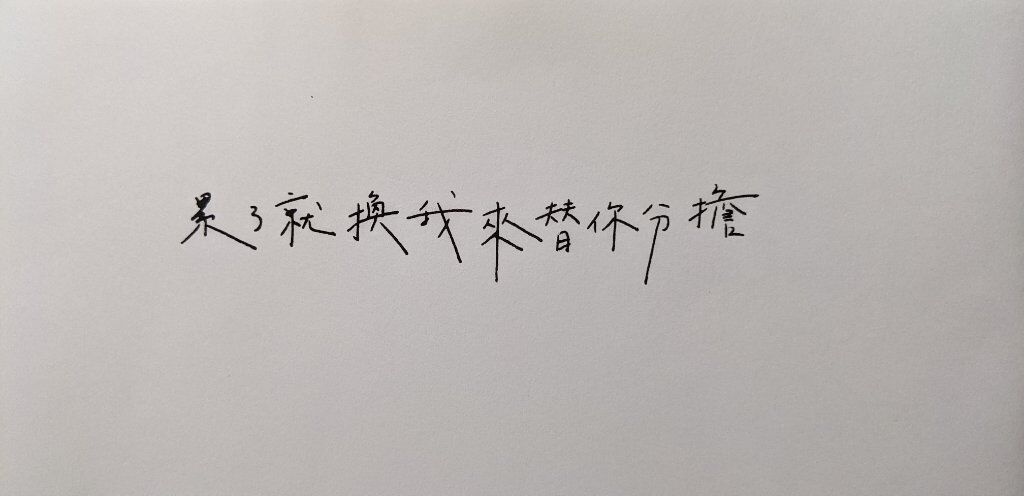 累了就換我來替你分擔